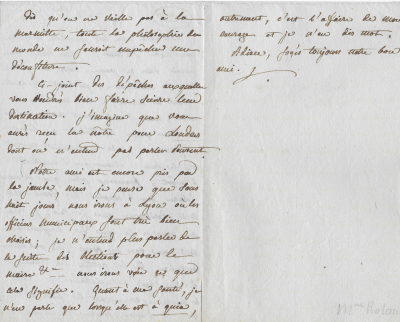 dès qu'on ne veille pas à la
marmite, toute la philosophie du
monde ne sauroit empêcher une
déconfiture.
Ci-joint des dépêches auxquelles
vous voudrés bien faire suivre leur
destination. j'imagine que vous
avés reçu la notte pour Londres
dont on n'entend pas parler souvent.
Notre ami est encore pris par
la jambe, mais je pense que sous
huit jours nous irons à Lyon où les
officiers municipaux sont très bien
choisis; je n'entend plus parler de
la suite des élections pour le
maire &c. nous irons voir ce que
cela signifie. Quant à ma santé, je
n'en parle que lorsqu'elle est à quia,
autrement, c'est l'affaire de mon
courage et je n'en dis mot.
Adieu, soyés toujours notre bon
ami.
Mme Roland